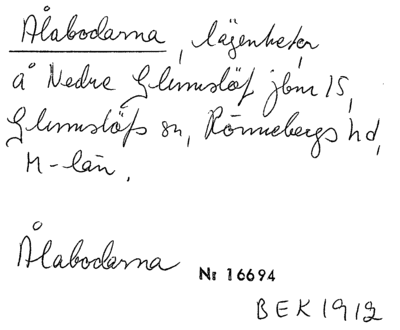 Ålabodarna, lägenheter,
å Nedre Glumslöf jbnr 15,
Glumslöfs sn, Rönnebergs hd,
M-län.
Ålabodarna Nr 16694
BEK 1912